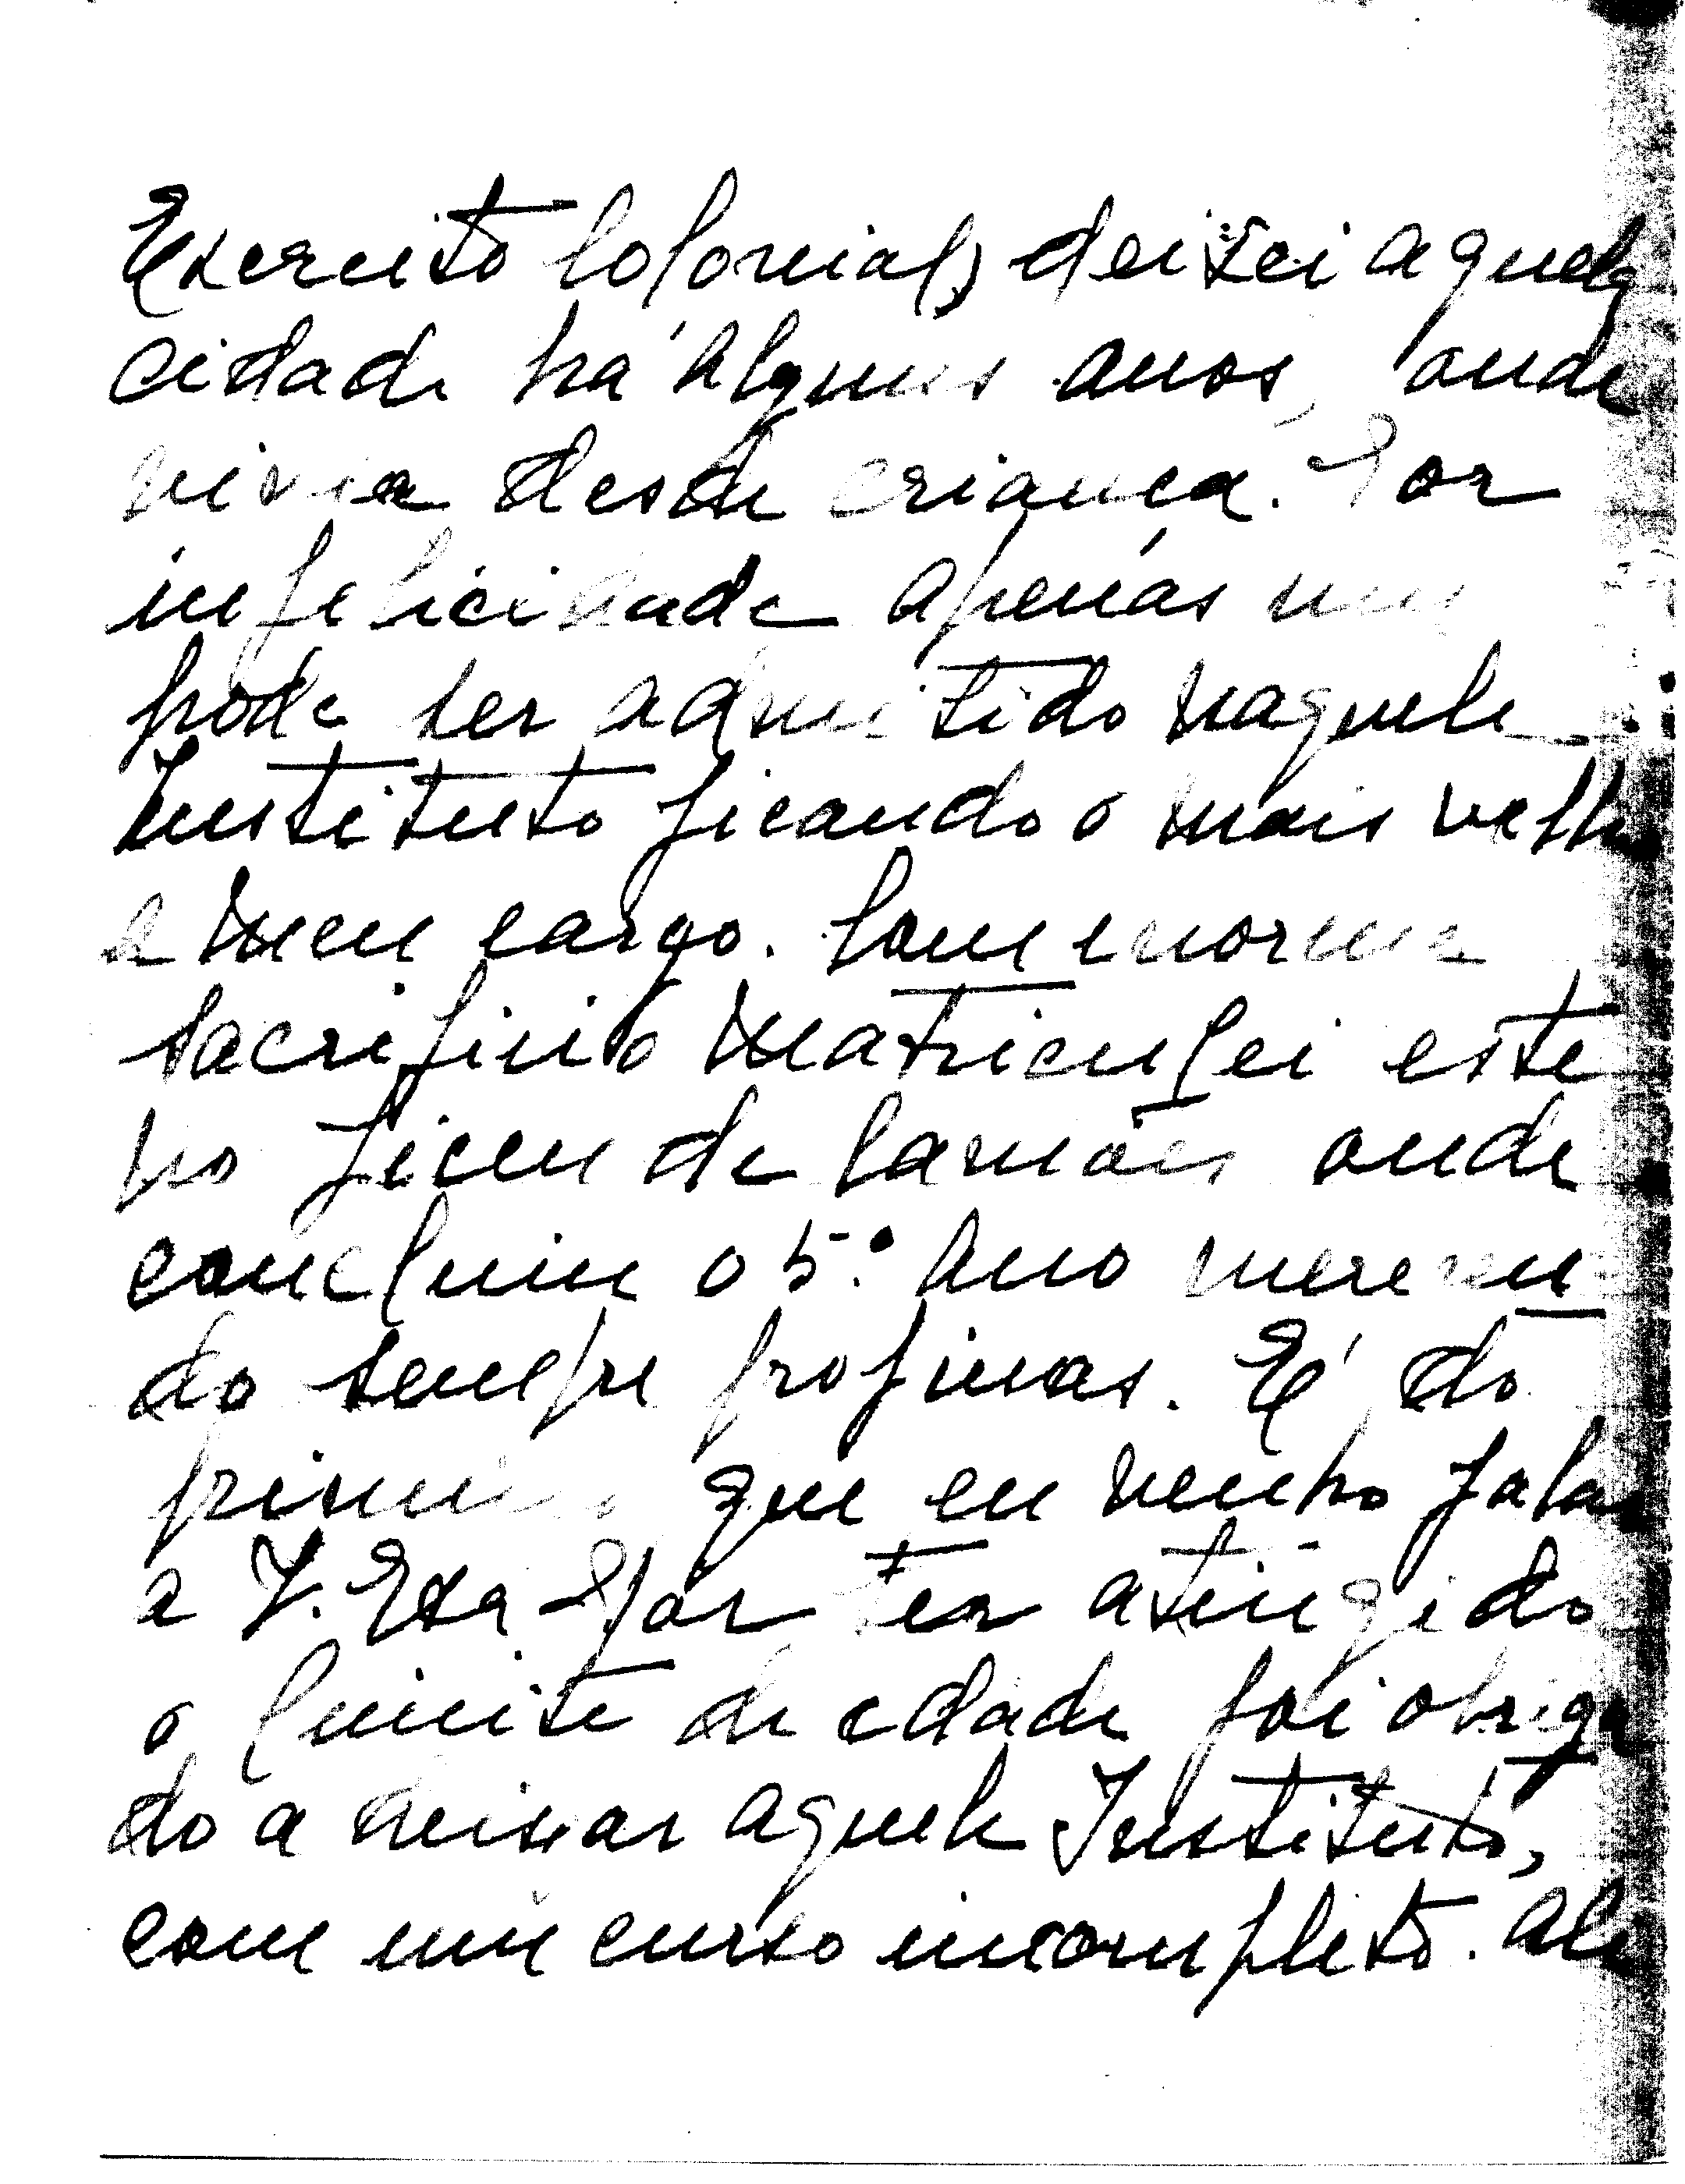 Exercito Colonial) deixei aquela
cidade há alguns anos, onde
vivia desde criança. Por
infelicidade apenas um
pode ser admitido naquele
Instituto ficando o mais velho
a meu cargo. Com enorme
sacrificio matriculei este
no liceu de Camões onde
concluiu o 5.º ano merecen
do sempre propinas. É do
primeiro que eu venho falar
a V. Exa Por ter atingido
o limite de edade foi obriga
do a deixar aquele Instituto,
com um curso incompleto. Ale